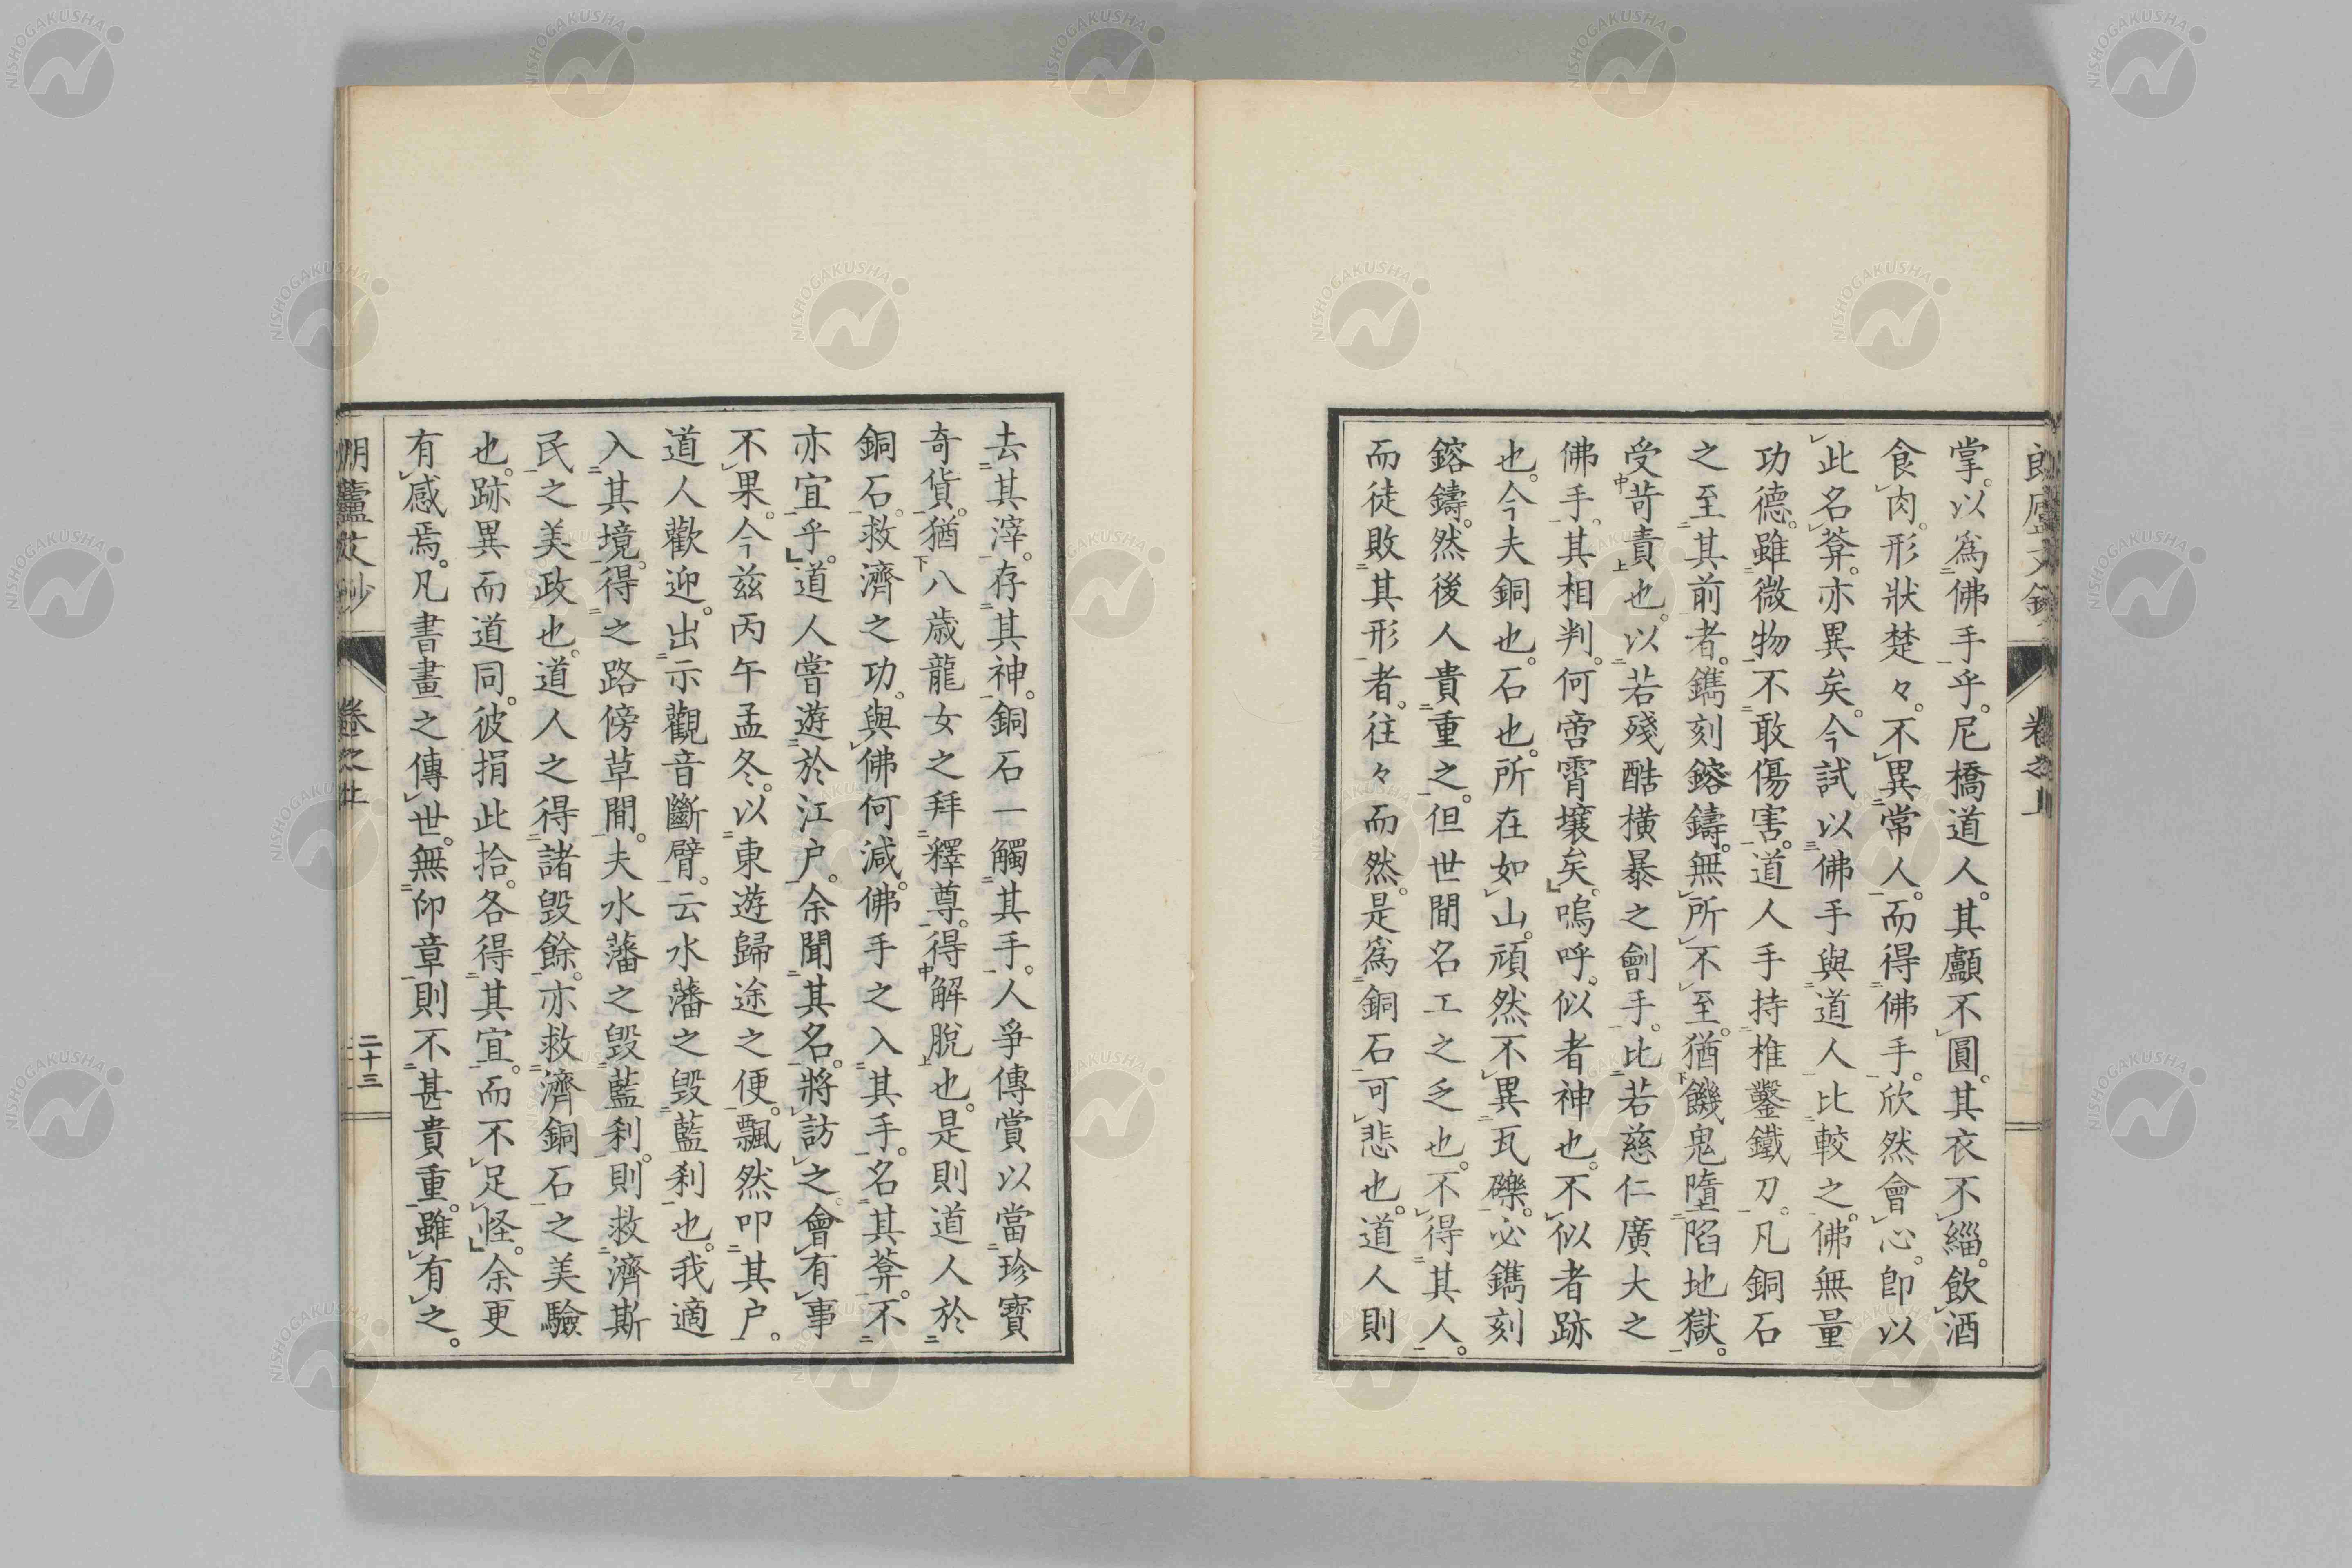 掌。以爲佛手乎。尼橋道人。其顱不圓。其衣不緇。飲酒
食肉。形狀楚々。不異常人。而得佛手。欣然會心。卽以
此名葊。亦異矣。今試以佛手與道人比較之。佛無量
功德。雖微物不敢傷害。道人手持椎鑿鐵刀。凡銅石
之至其前者。鐫刻鎔鑄。無所不至。猶餓鬼墮陷地獄。
受苛責也。以若殘酷橫暴之劊手。比若慈仁廣大之
佛手。其相判。何啻霄壤矣。嗚呼。似者神也。不似者跡
也。今夫銅也。石也。所在如山。頑然不異瓦礫。必鐫刻
鎔鑄。然後人貴重之。但世間名工之乏也。不得其人。
而徒敗其形者。往々而然。是爲銅石可悲也。道人則
去其滓。存其神。銅石一觸其手。人爭傳賞以當珍寶
奇貨。猶八歲龍女之拜釋尊。得解脫也。是則道人於
銅石。救濟之功。與佛何減。佛手之入其手。名其葊。不
亦宜乎。道人嘗遊於江戶。余聞其名。將訪之。會有事
不果。今茲丙午孟冬。以東遊歸途之便。飄然叩其戶。
道人歡迎。出示觀音斷臂。云水藩之毀藍刹也。我適
入其境。得之路傍草間。夫水藩之毀藍刹。則救濟斯
民之美政也。道人之得諸毀餘。亦救濟銅石之美驗
也。跡異而道同。彼捐此拾。各得其宜。而不足怪。余更
有感焉。凡書畫之傳世。無印章則不甚貴重。雖有之。
朗廬文鈔 卷之上 二十三